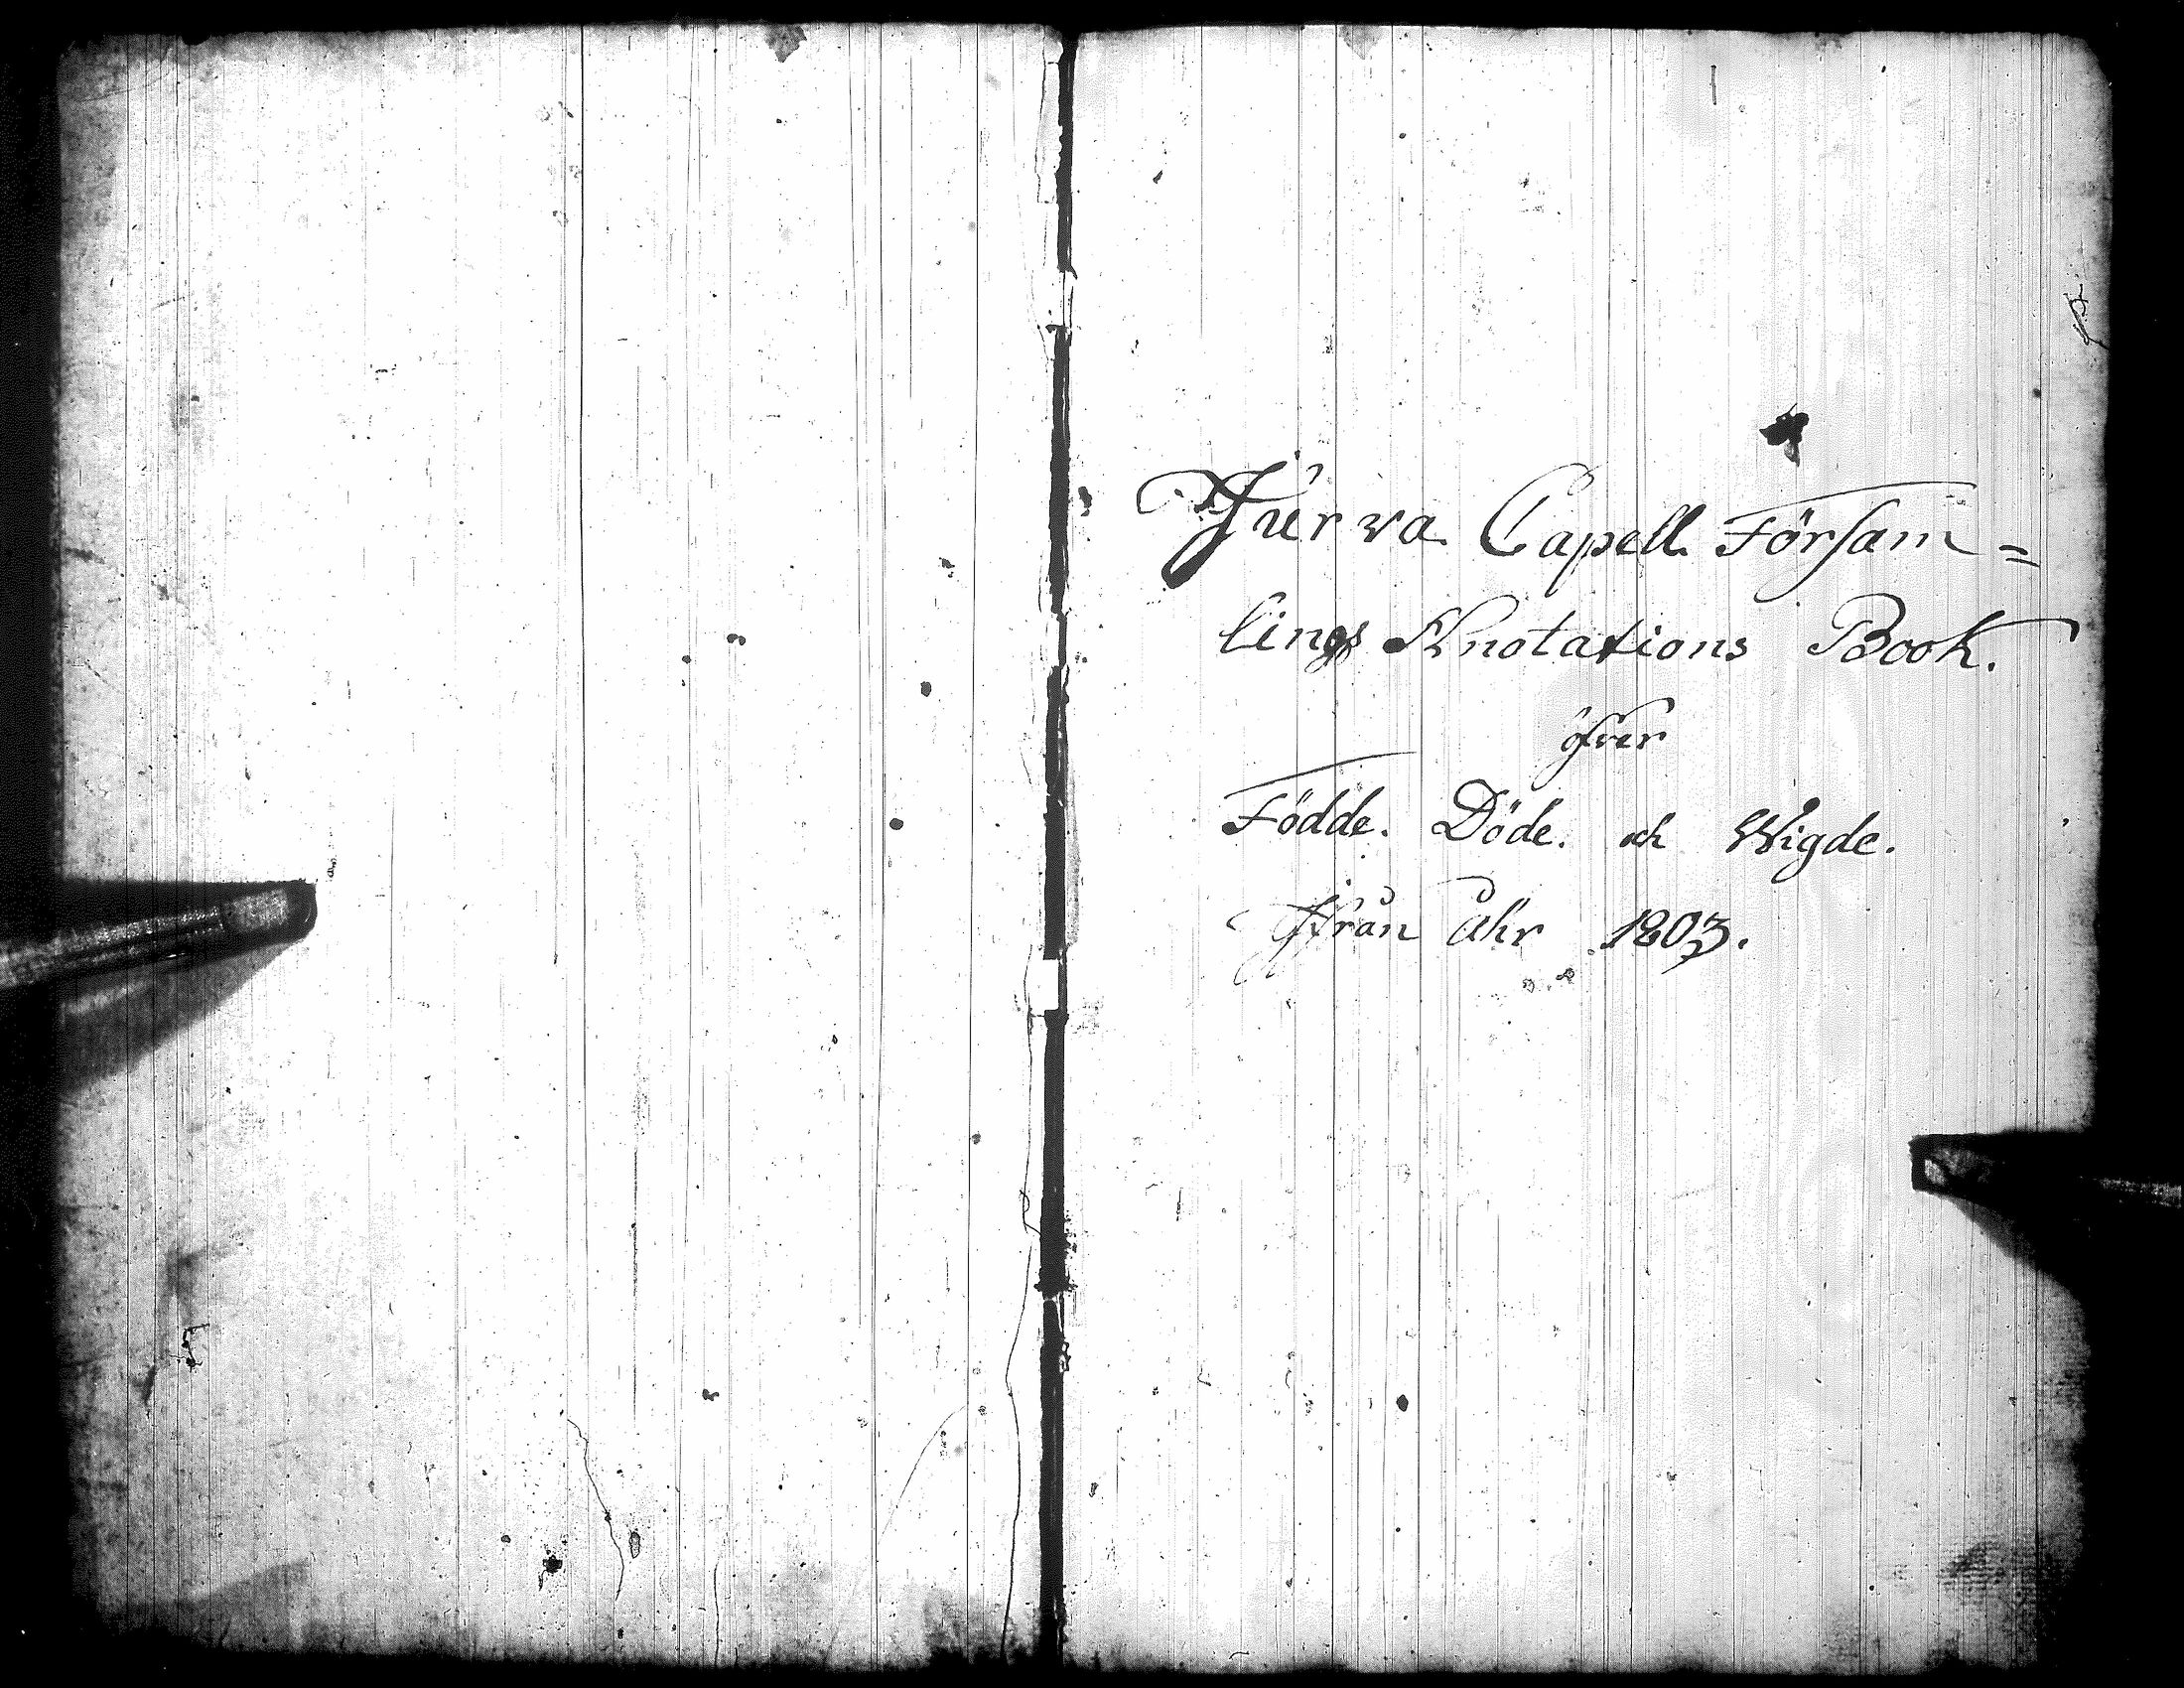 Jurva Capell Försam=
lings Annotations Book.
öfver
Födde. Döde. och Wigde.
ifrån åhr 1803.